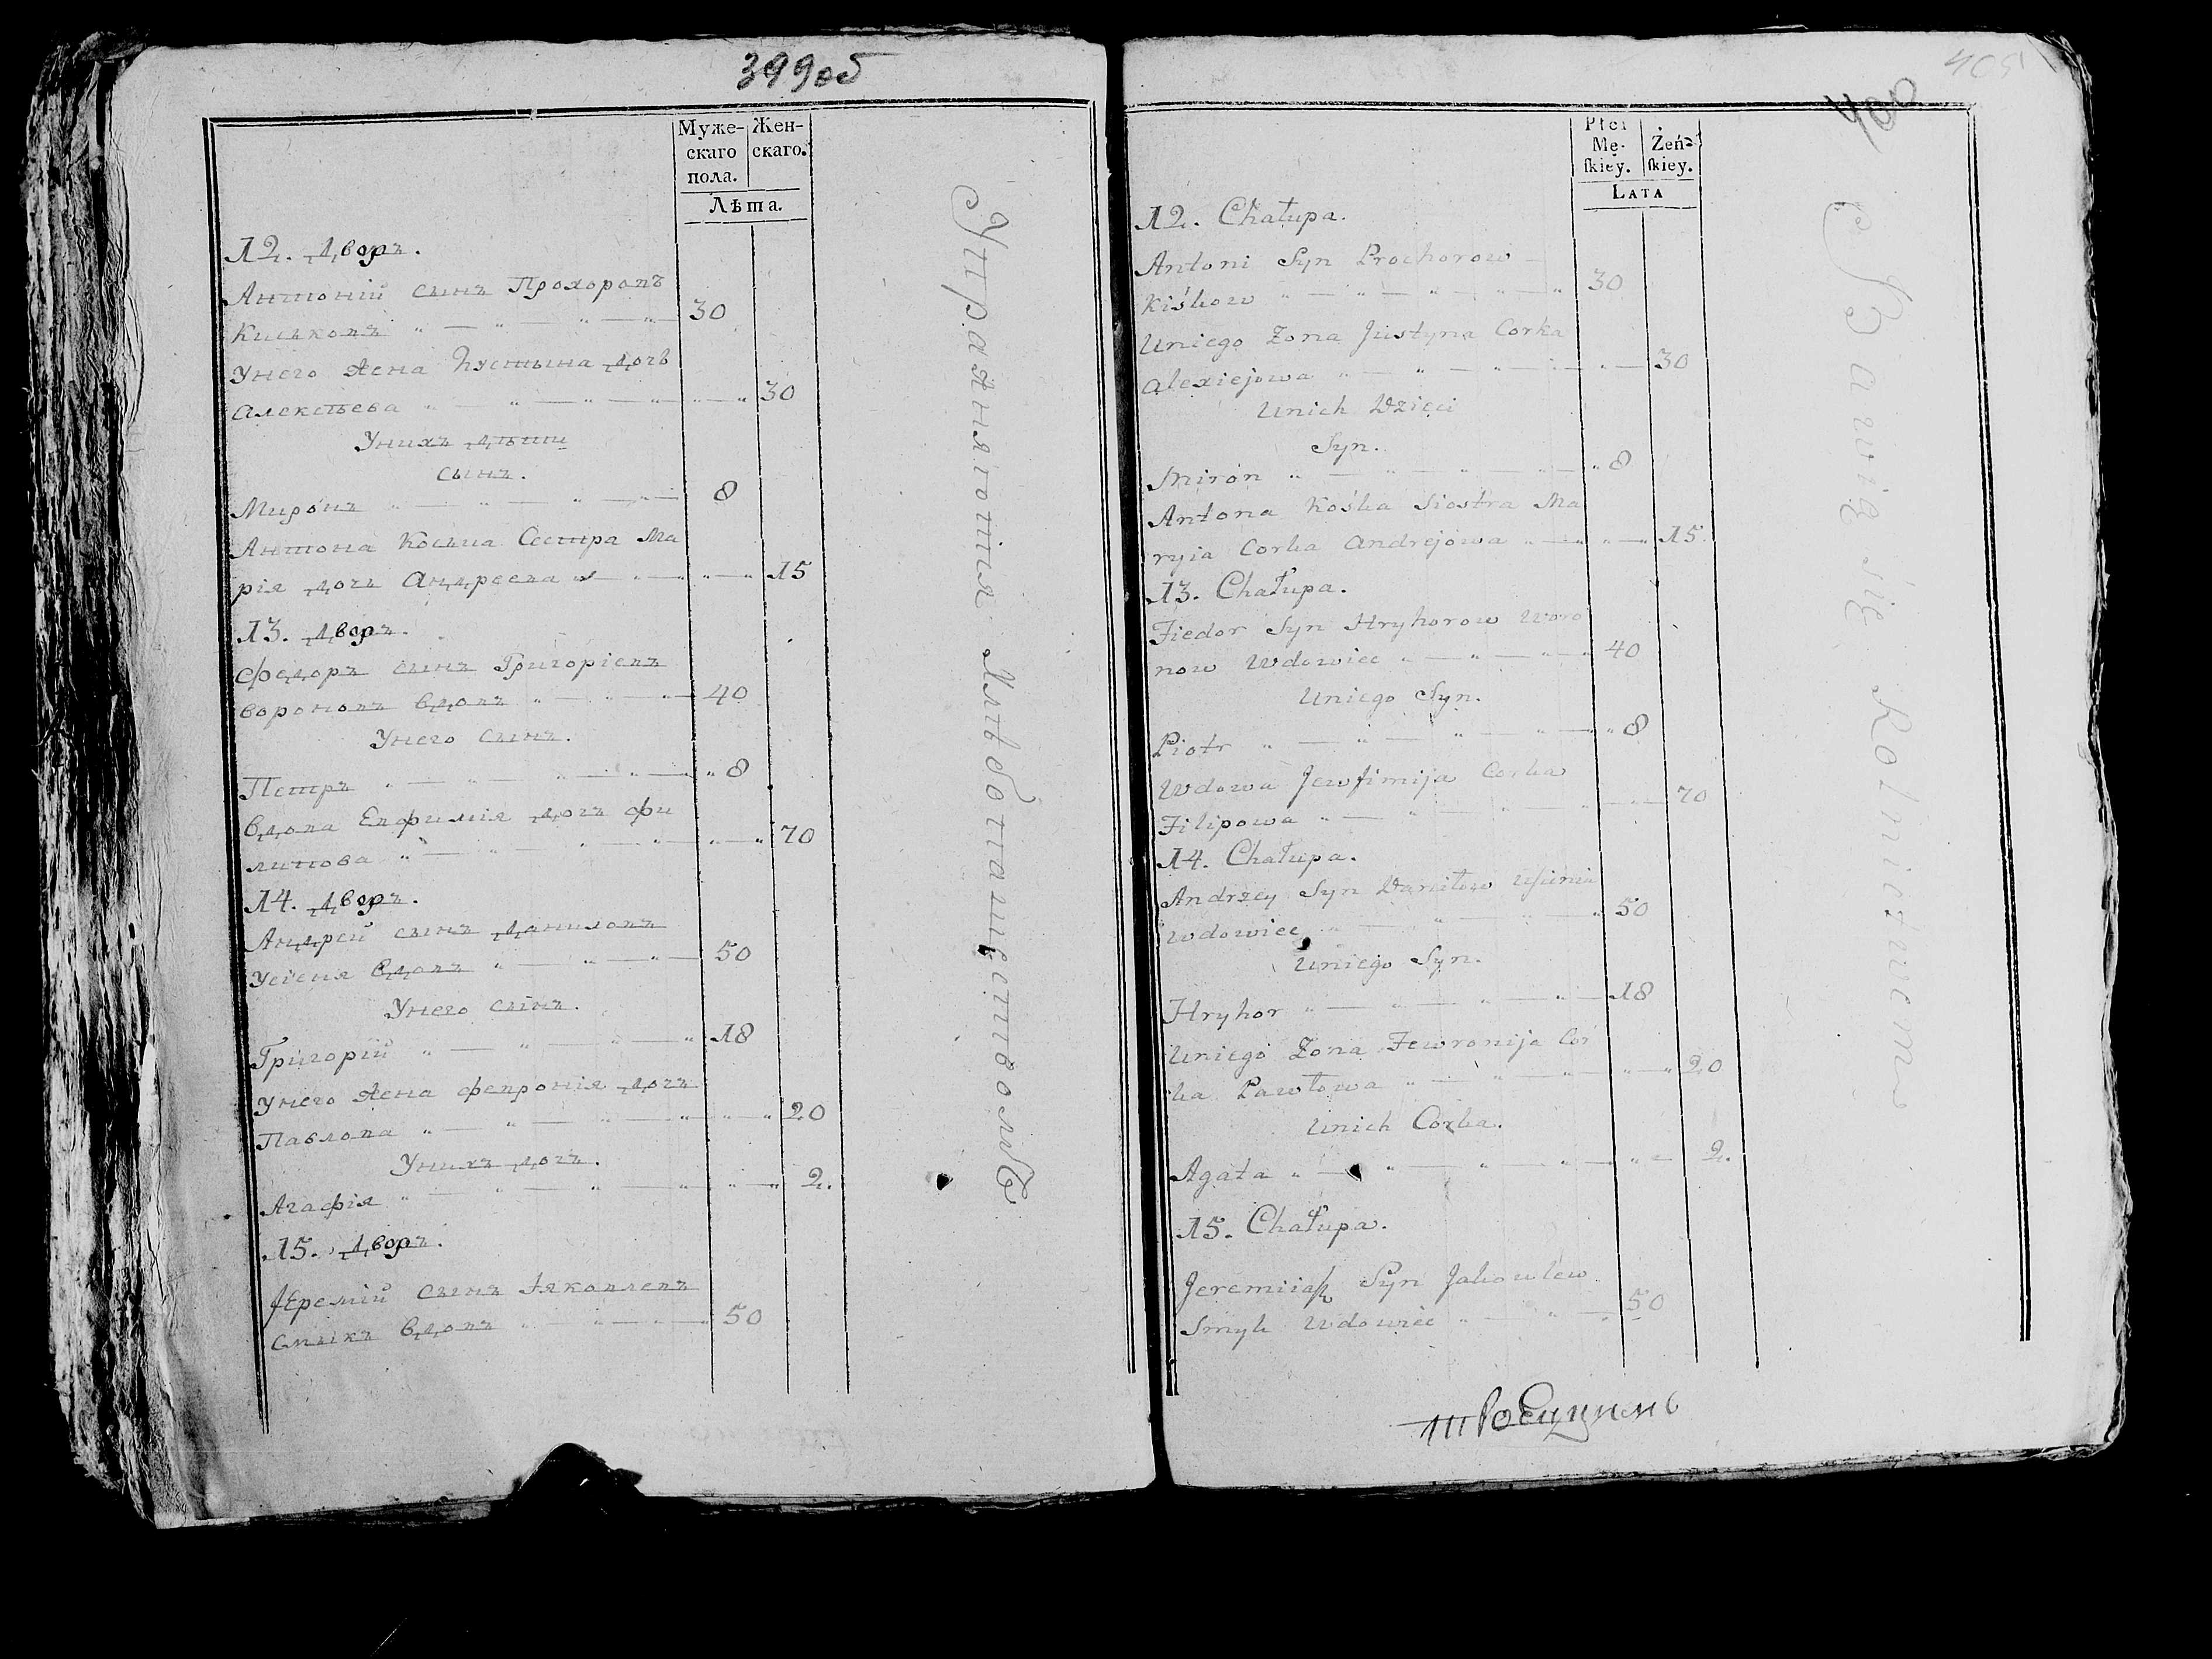 399об
Муже- Жен-
скаго скаго.
пола.
Лѣта.
12. Дворъ.
Антоній сынъ Прохоровъ
Киськовъ 30
Унего жена Іустына дочь
Алексѣева 30
Унихъ дѣти
сынъ.
Миронъ 8
Антона Коська Сестра Ма
рія дочъ Андреева 15
13. Дворъ.
Федоръ сынъ Григоріевъ
вороновъ вдовъ 40
Унего сынъ.
Петръ 8
вдова Евфимія дочъ фи
липова 70
14. Дворъ.
Андрей сынъ Даниловъ
Усіеня вдовъ 50
Унего сынъ.
Григорій 18
Унего жена февронія дочъ
Павлова 20
Унихъ дочъ.
Агафія 2.
15. Дворъ.
Іеремій сынъ Яковлевъ
Смыкъ вдовъ 50
Упражняются Хлѣбопашествомъ
400
Płci
Mę- Żeń-
skiey. skiey.
LATA
12. Chałupa.
Antoni Syn Prochorow
Kiśkow 30
Uniego Żona Justyna Corka
Alexiejowa 30
Unich Dzieci
Syn.
Miron 8
Antona Kośka Siostra Ma
ryia Corka Andrejowa 15.
13. Chałupa.
Fiedor Syn Hryhorow Woro
now Wdowiec 40
Uniego Syn.
Piotr 8
Wdowa Jewfimija Corka
Filipowa 70
14. Chałupa.
Andrzey Syn Daniłow Usienia
Wdowiec 50
Uniego Syn.
Hryhor 18
Uniego Żona Fewronija Cor
ka Pawłowa 20
Unich Corka.
Agata 2.
15. Chałupa.
Jeremiiasz Syn Jakowlew
Smyk Wdowiec 50
Bawią się Rolnictwem